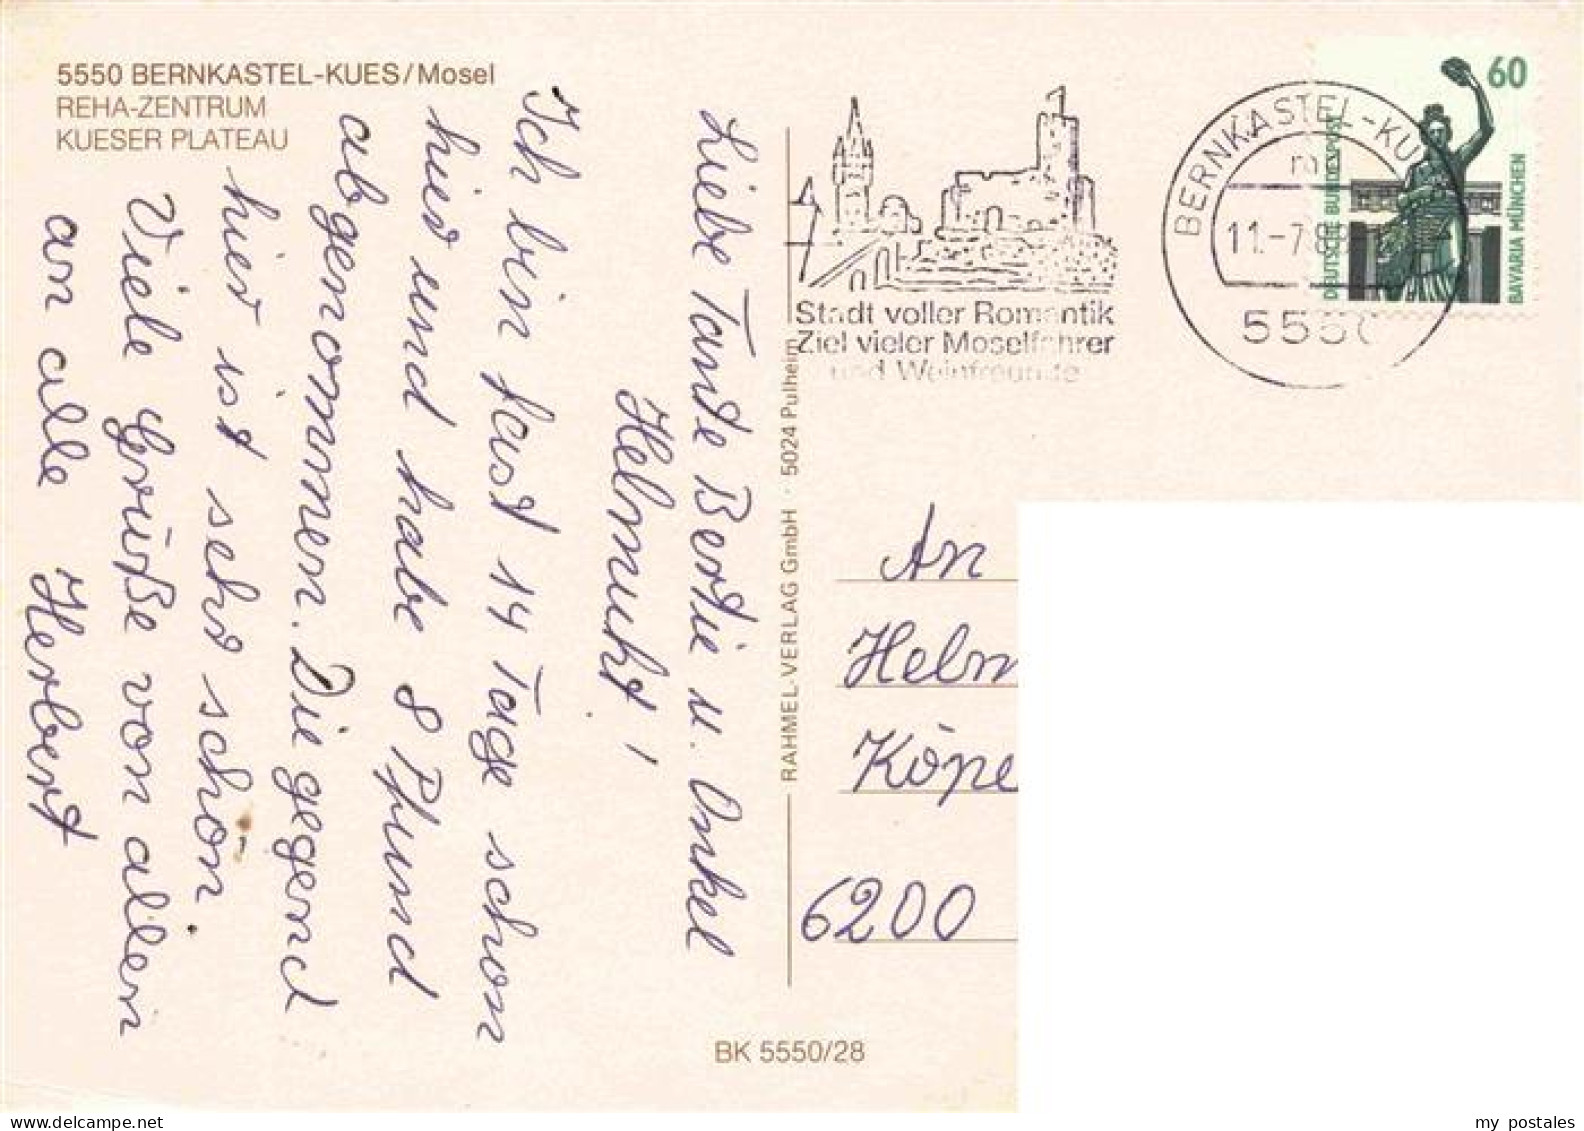 5550 BERNKASTEL-KUES/Mosel
REHA-ZENTRUM
KUESER PLATEAU
Liebe Tande Berdie u. Onkel
Helmuht!
Ich bin fast 14 Tage schon
hier und habe 8 Pfund
abgenommen. Die gegend
hier ist sehr schön
Viele Grüße von allen
an alle Herbert
RAHMEL-VERLAG GmbH · 5024 Pulheim
Stadt voller Romantik
Ziel vieler Moselfahrer
und Weinfreunde
BERNKASTEL-KU
11.-7.8
5550
60
DEUTSCHE BUNDESPOST
BAVARIA MÜNCHEN
An
Helm
Köpe
6200
BK 5550/28
delcampe.net
my postales